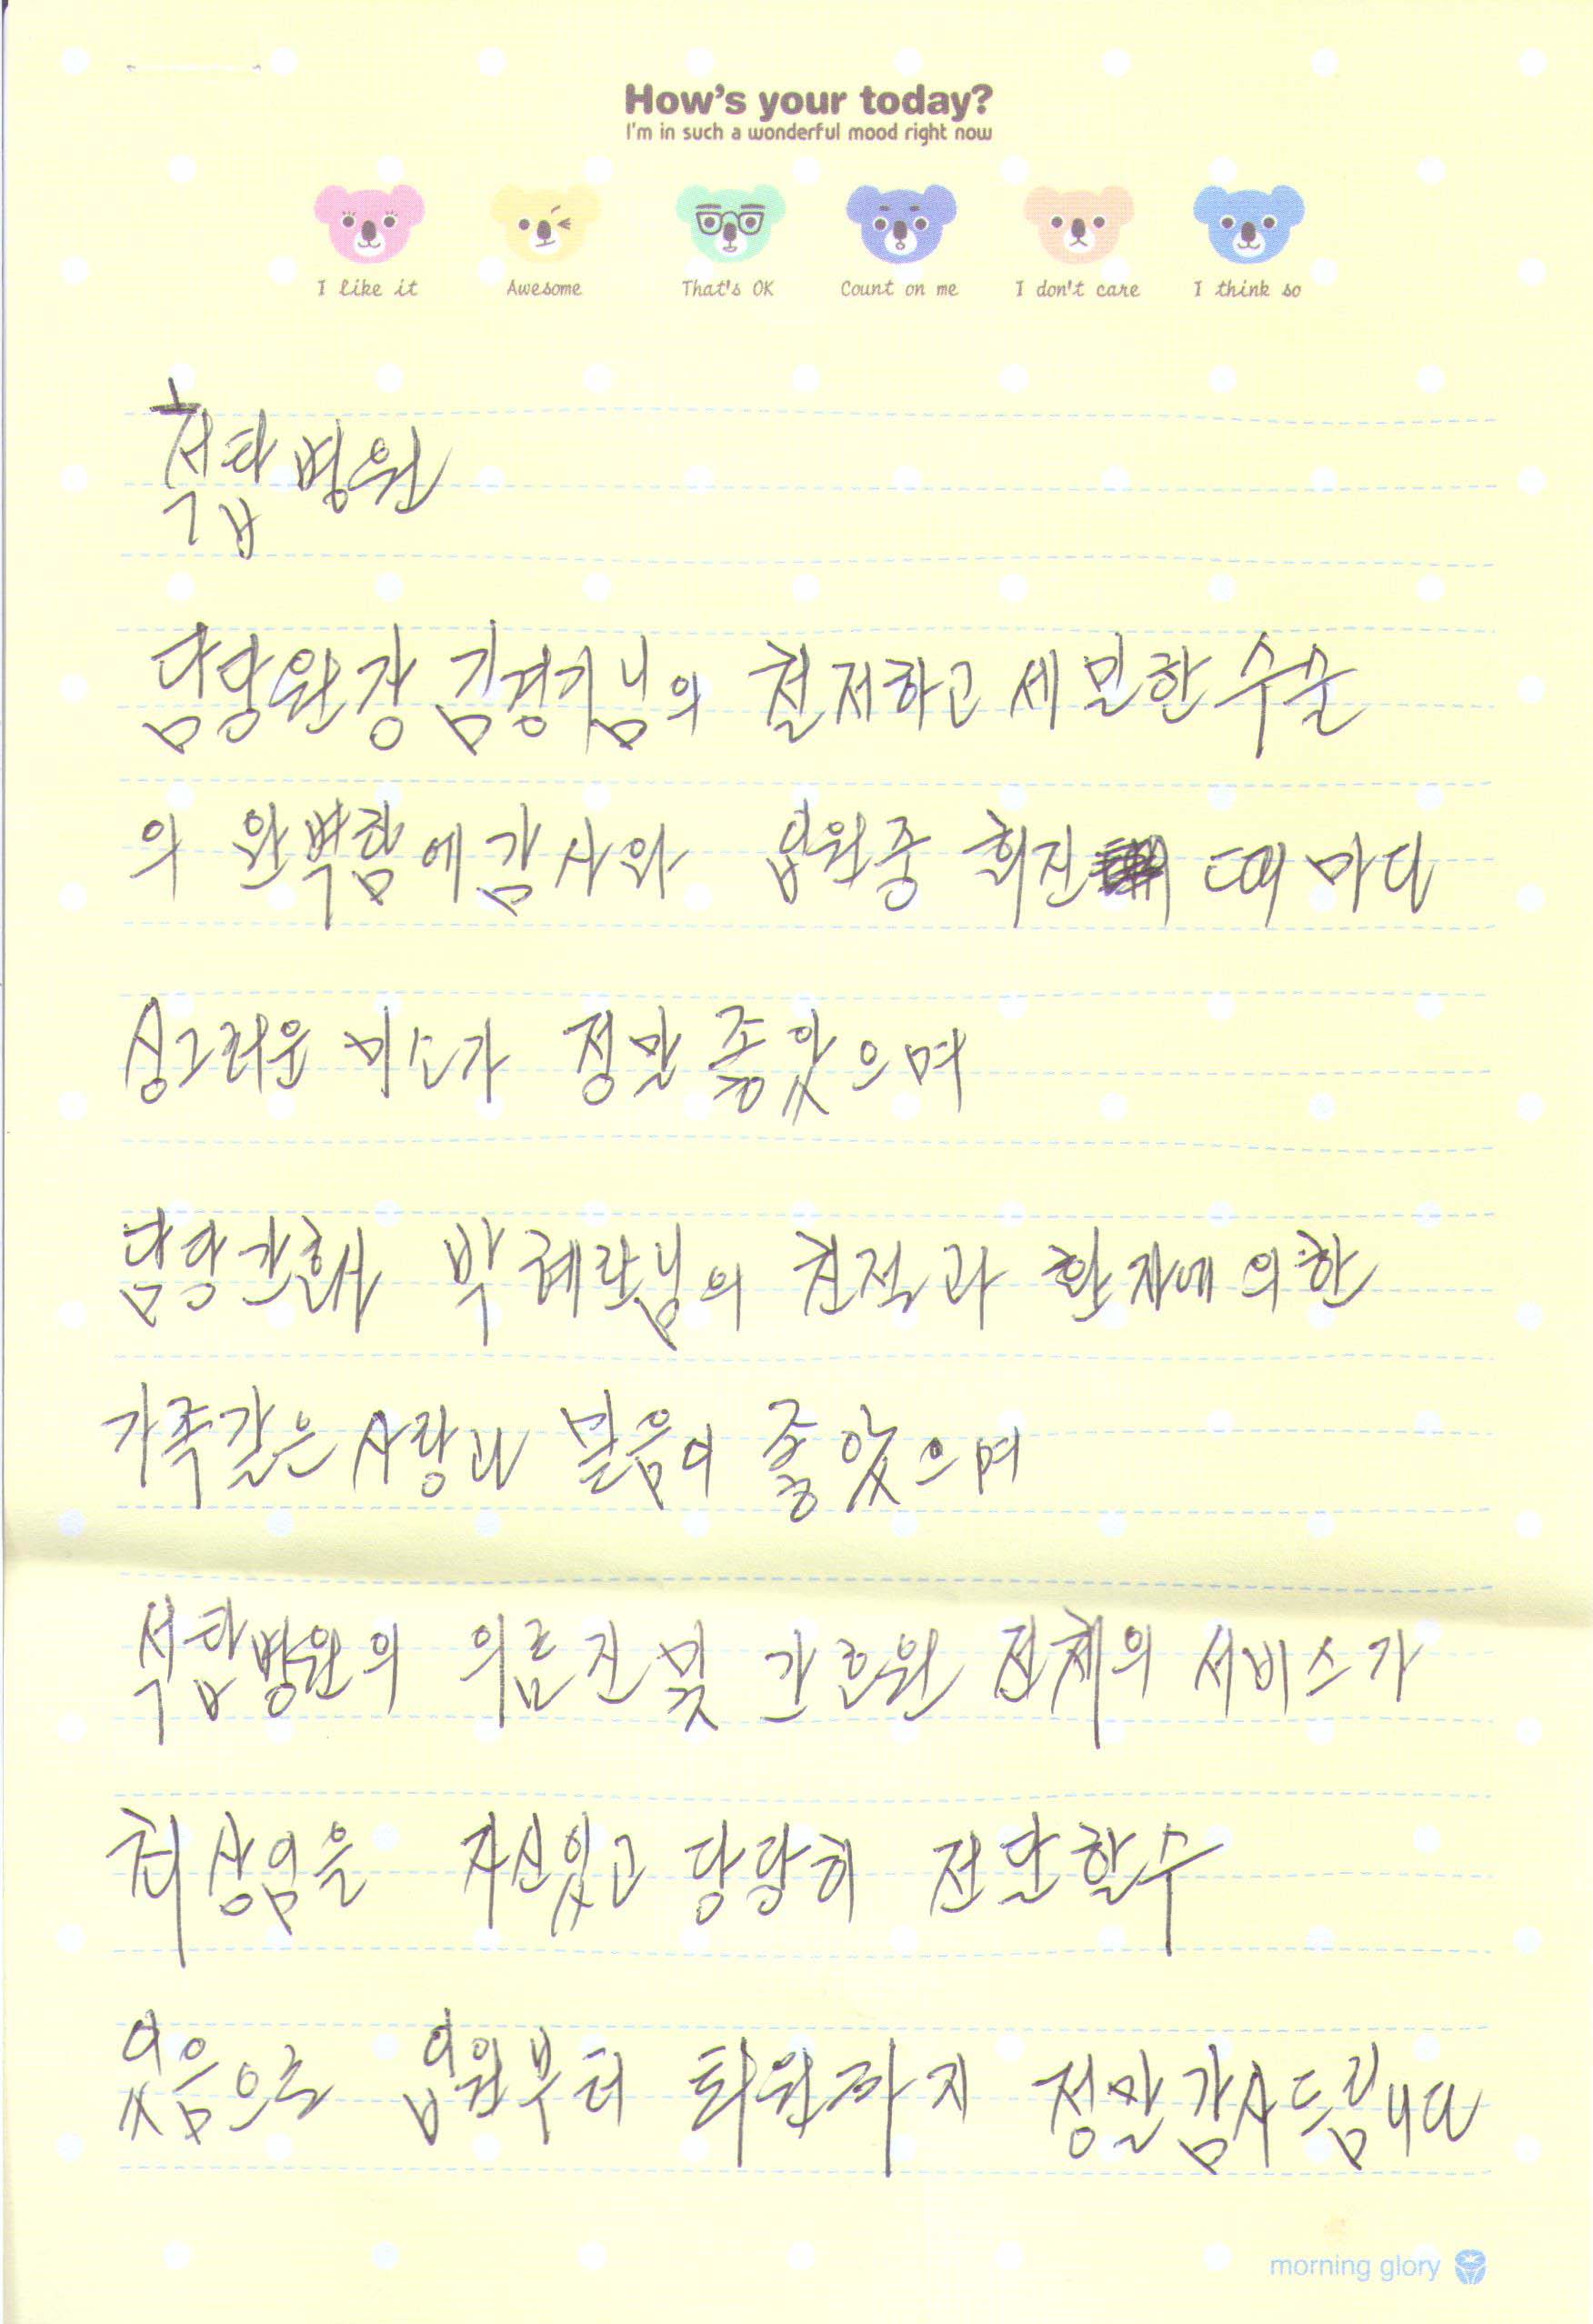 How's your today?
I'm in such a wonderful mood right now
I like it Awesome That's OK Count on me I don't care I think so
척탑병원
담당원장 김경기님의 철저하고 세밀한 수술
의 완벽함에 감사와 입원중 회진 때마다
싱그러운 미소가 정말 좋았으며
담당간호사 박혜란님의 친절과 환자에 의한
가족같은 사랑과 믿음이 좋았으며
석탑병원의 의료진및 간호원 전체의 서비스가
최상임을 자신있고 당당히 전달할수
있음으로 입원부터 퇴원까지 정말감사드립니다
morning glory